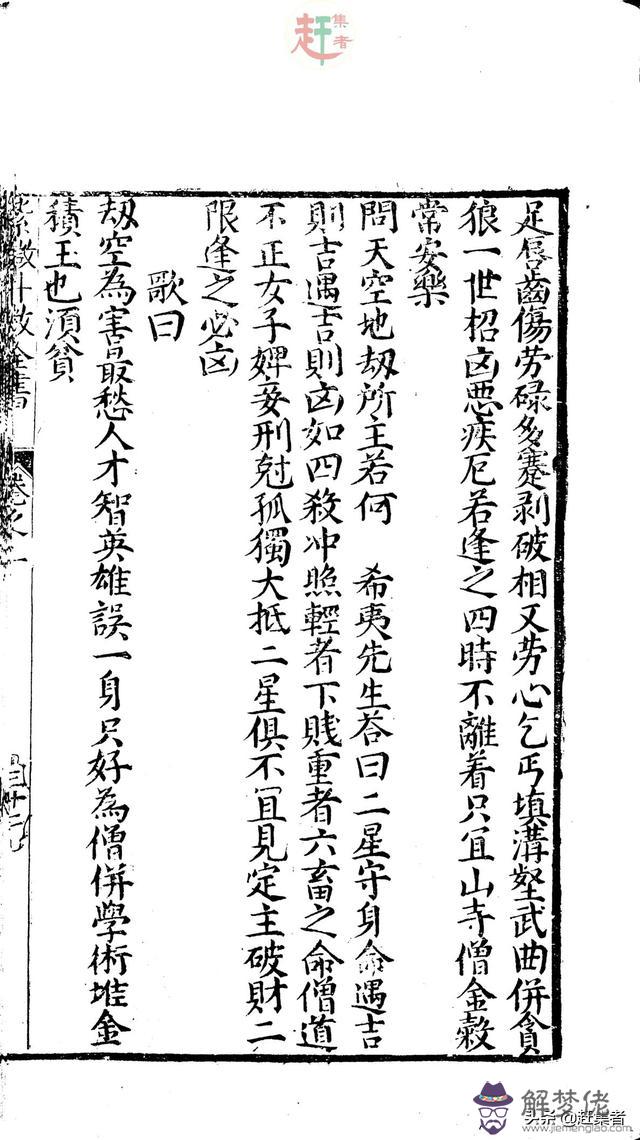 赶集者
足唇齒傷劳碌多蹇剥破相又劳心乞丐填溝壑武曲併貪
狼一世招凶悪疾厄若逢之四時不離着只宜山寺僧金榖
常安樂
問天空地刼所主若何 希夷先生荅曰二星守身命遇吉
則吉遇吉則凶如四殺冲照輕者下賎重者六畜之命僧道
不正女子婢妾刑尅孤獨大抵二星俱不宜見定主破財二
限逢之必凶
歌曰
刼空為害最愁人才智英雄誤一身只好為僧併學術堆金
積玉也湏貧
卷之一
解梦佬
头条@赶集者
www.jiemenglao.com